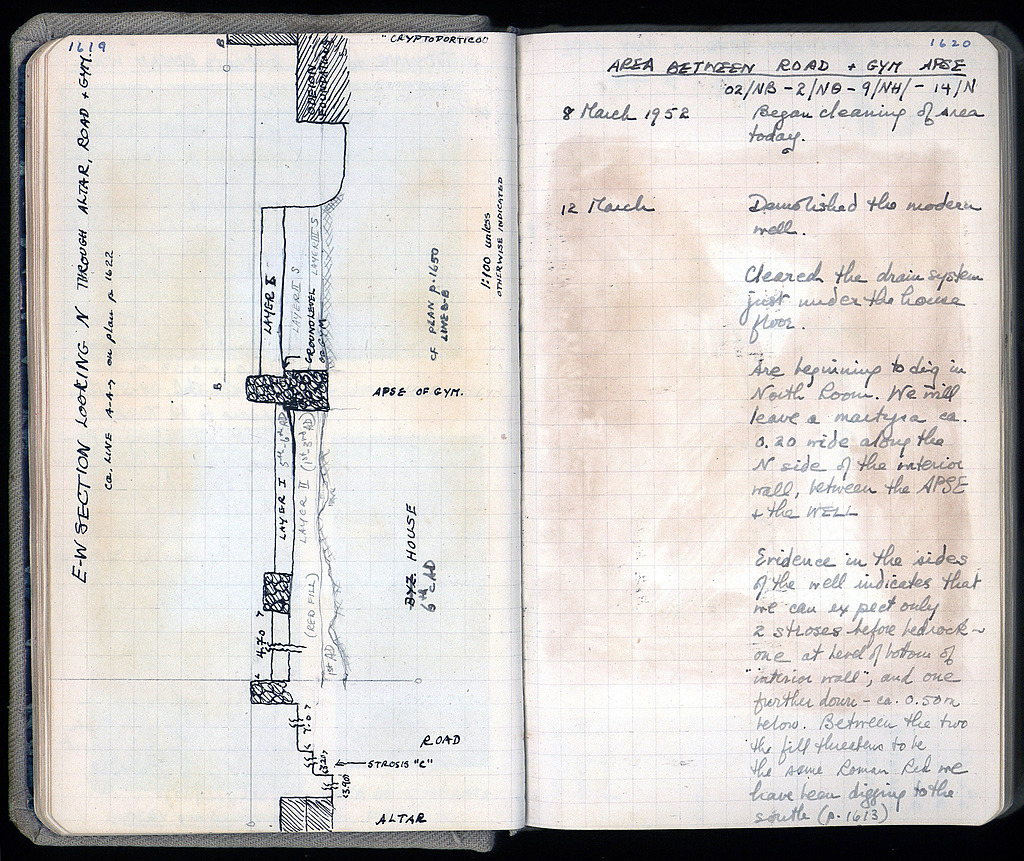 1619
E-W SECTION LOOKING N THROUGH ALTAR, ROAD + GYM.
ca. LINE A-A on plan p 1622
B
"CRYPTOPORTICO"
FOUNDATIONS
LAYER I
LAYER II S
LAYER III S
GROUND LEVEL
OF GYM
cf PLAN p. 1650
LINE B-B
1:100 unless
OTHERWISE INDICATED
B
APSE OF GYM.
LAYER I 5th-6th AD
LAYER II (1st-3rd AD)
(RED FILL)
1st AD
BYZ HOUSE
6th c AD
4.70
7.0
ROAD
STROSIS "C"
(3.20)
(3.90)
ALTAR
1620
AREA BETWEEN ROAD + GYM APSE
02/NB - 2/NΘ - 9/NH/ - 14/N
8 March 1952 Began cleaning of area
today.
12 March Demolished the modern
well.
Cleared the drain system
just under the house
floor.
Are beginning to dig in
North Room. We will
leave a martyra ca.
0.20 wide along the
N side of the interior
wall, between the APSE
+ the WELL
Evidence in the sides
of the well indicates that
we can expect only
2 stroses before bedrock -
one at level of bottom of
"interior wall", and one
further down - ca. 0.50m
below. Between the two
the fill threatens to be
the same Roman Red we
have been digging to the
south (p. 1613)